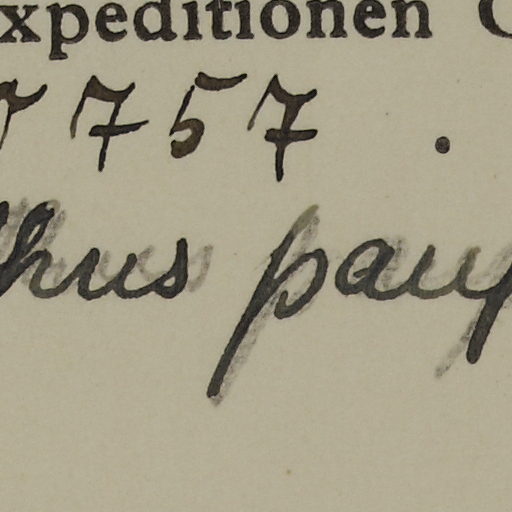 xpeditionen
757 .
hus pau